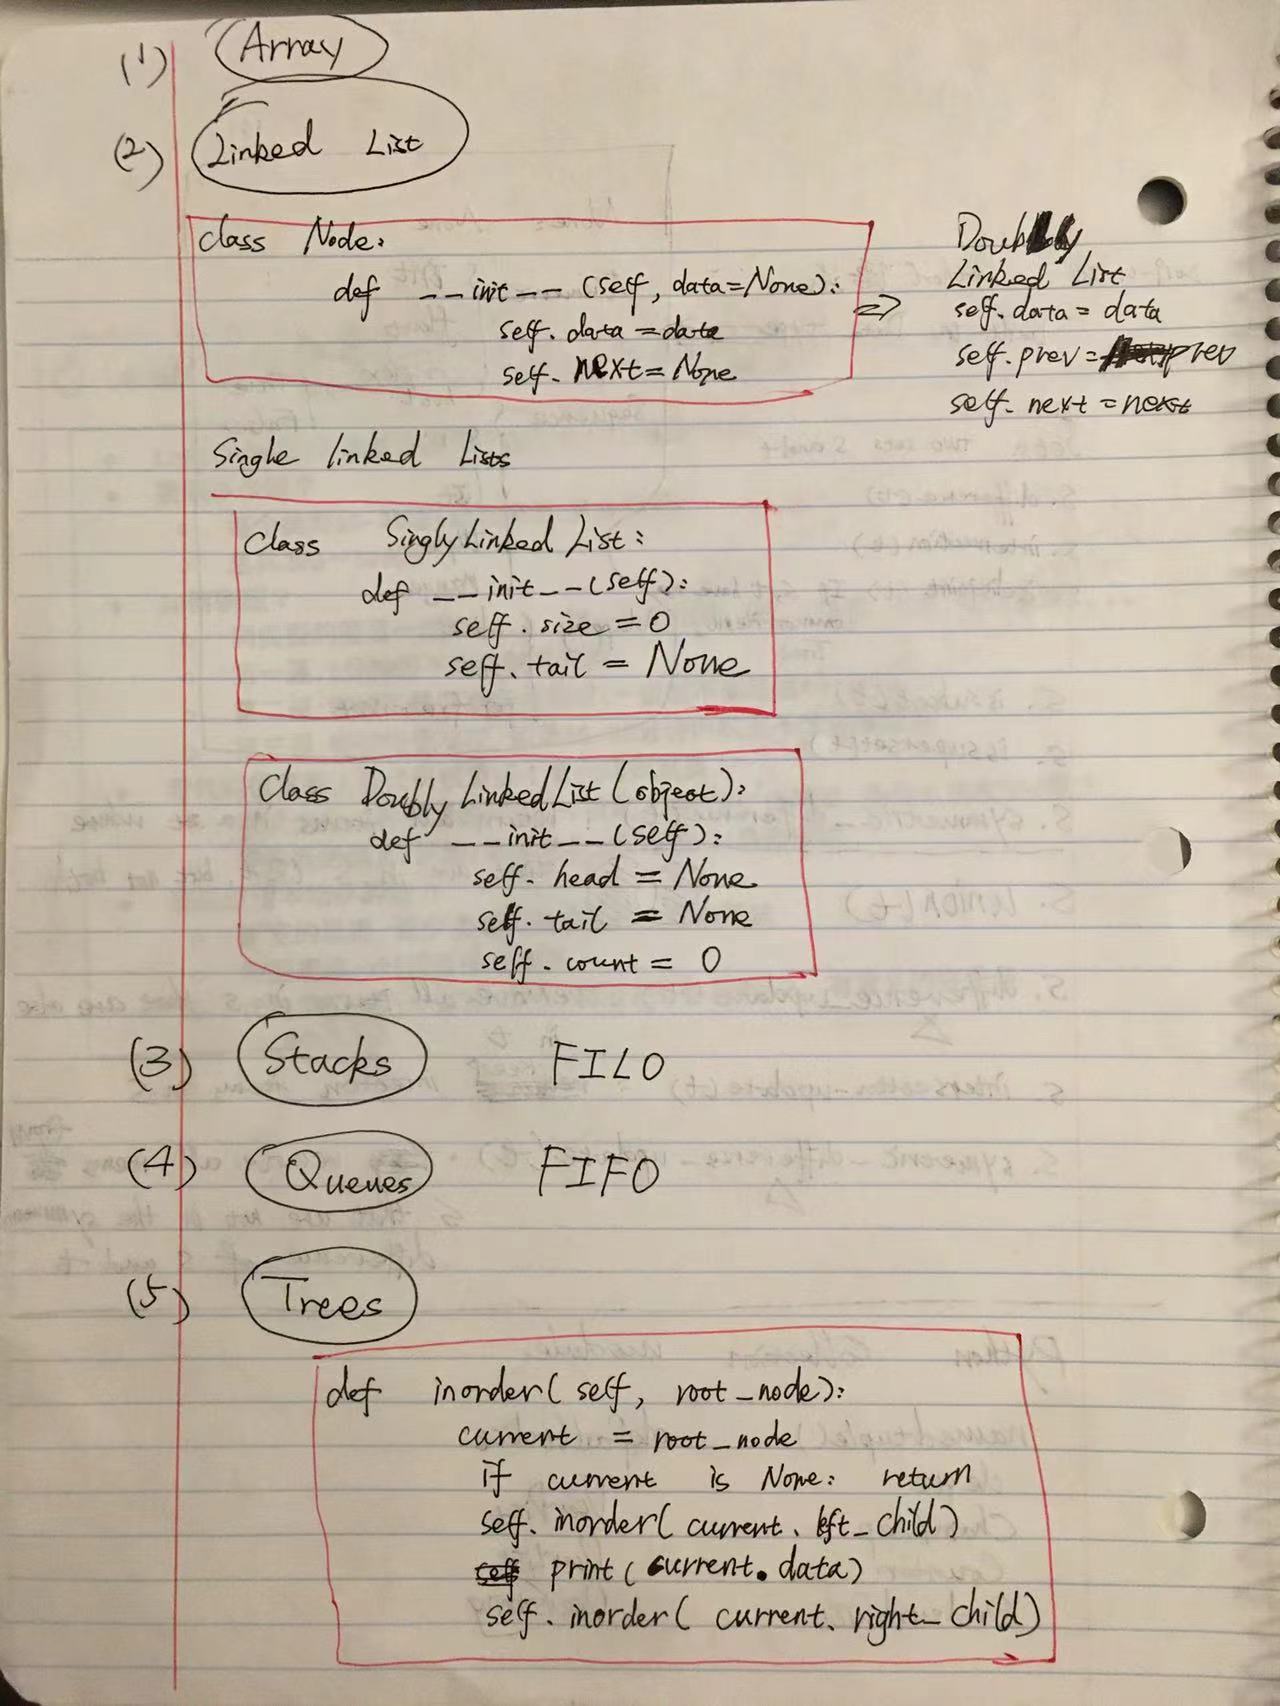 (1) Array
(2) Linked List
class Node:
def __init__(self, data=None):
self.data = data
self.next = None
⇒ Doubly
Linked List
self.data = data
self.prev = prev
self.next = next
Single linked Lists
class SinglyLinked List:
def __init__(self):
self.size = 0
self.tail = None
class Doubly LinkedList(object):
def __init__(self):
self.head = None
self.tail = None
self.count = 0
(3) Stacks FILO
(4) Queues FIFO
(5) Trees
def inorder(self, root_node):
current = root_node
if current is None: return
self.inorder(current.left_child)
print(current.data)
self.inorder(current.right_child)